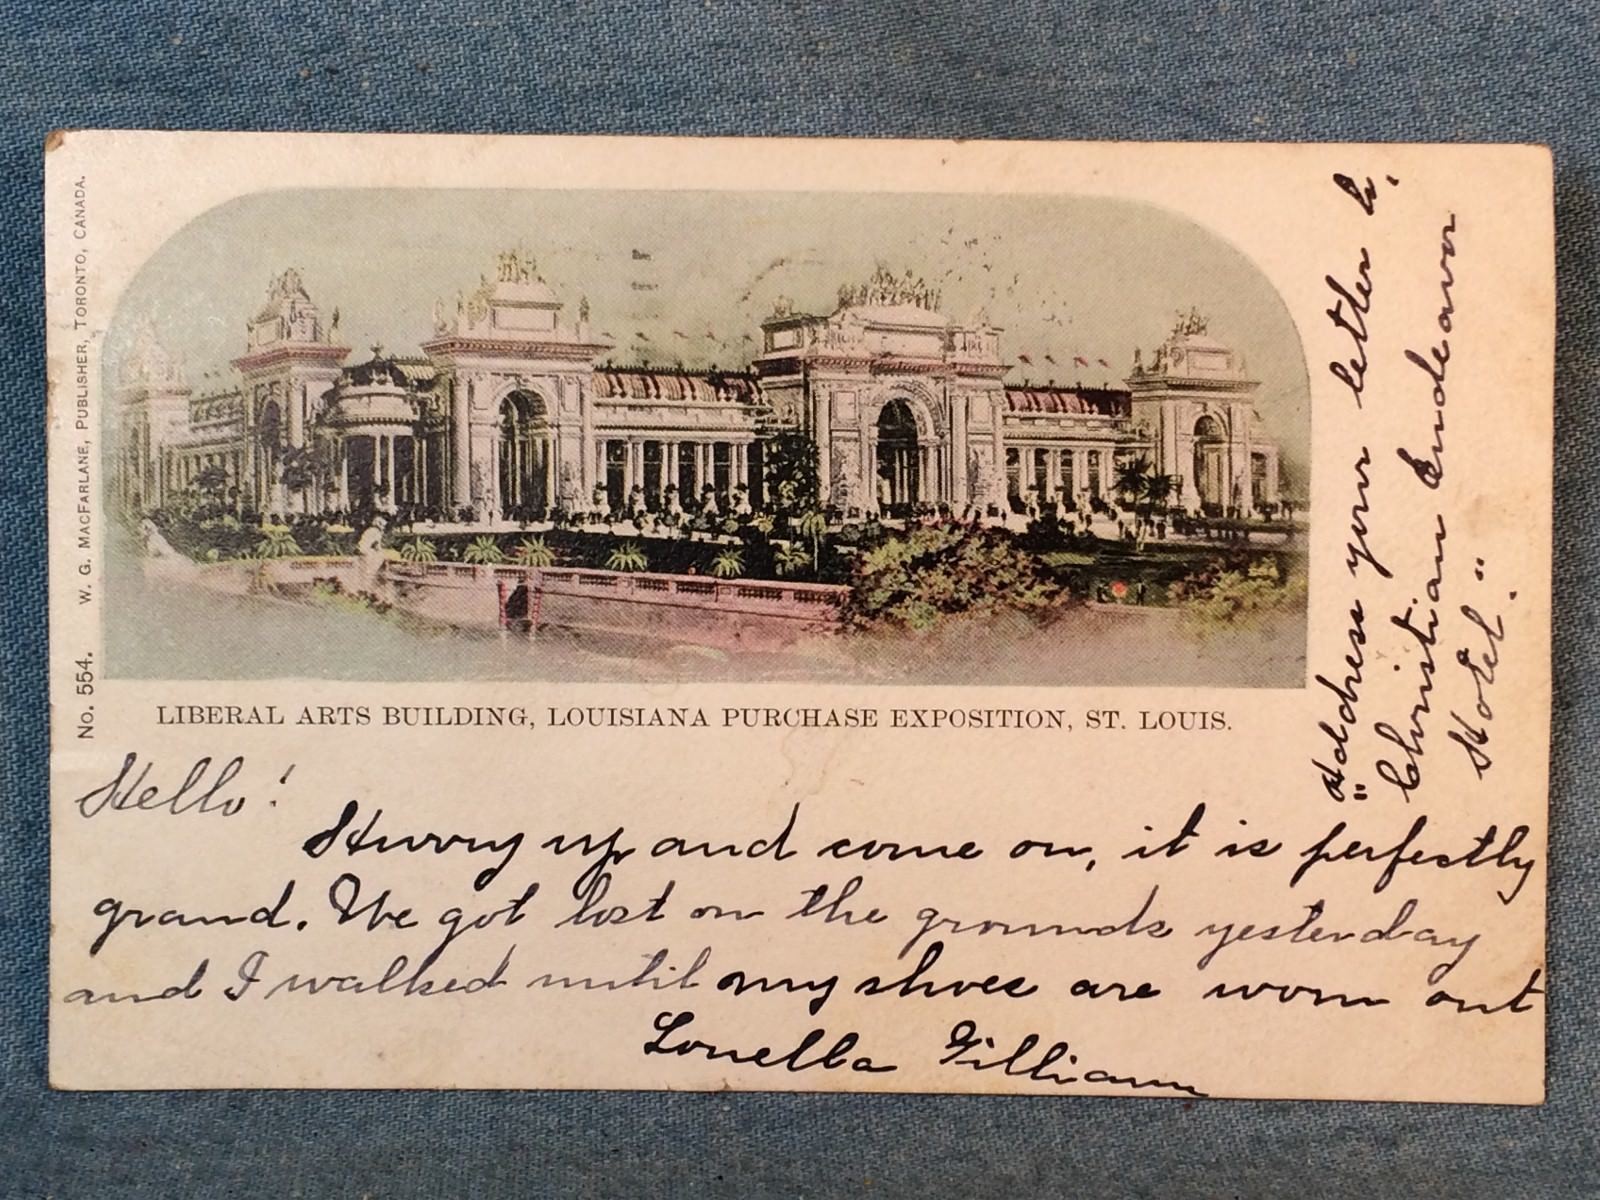 No. 554. W. G. MACFARLANE, PUBLISHER, TORONTO, CANADA.
LIBERAL ARTS BUILDING, LOUISIANA PURCHASE EXPOSITION, ST. LOUIS.
Hello!
Hurry up and come on, it is perfectly
grand. We got lost on the grounds yesterday
and I walked until my shoes are worn out
Louella Gilliam
Address your letter to,
"Christian Endeavor
Hotel".